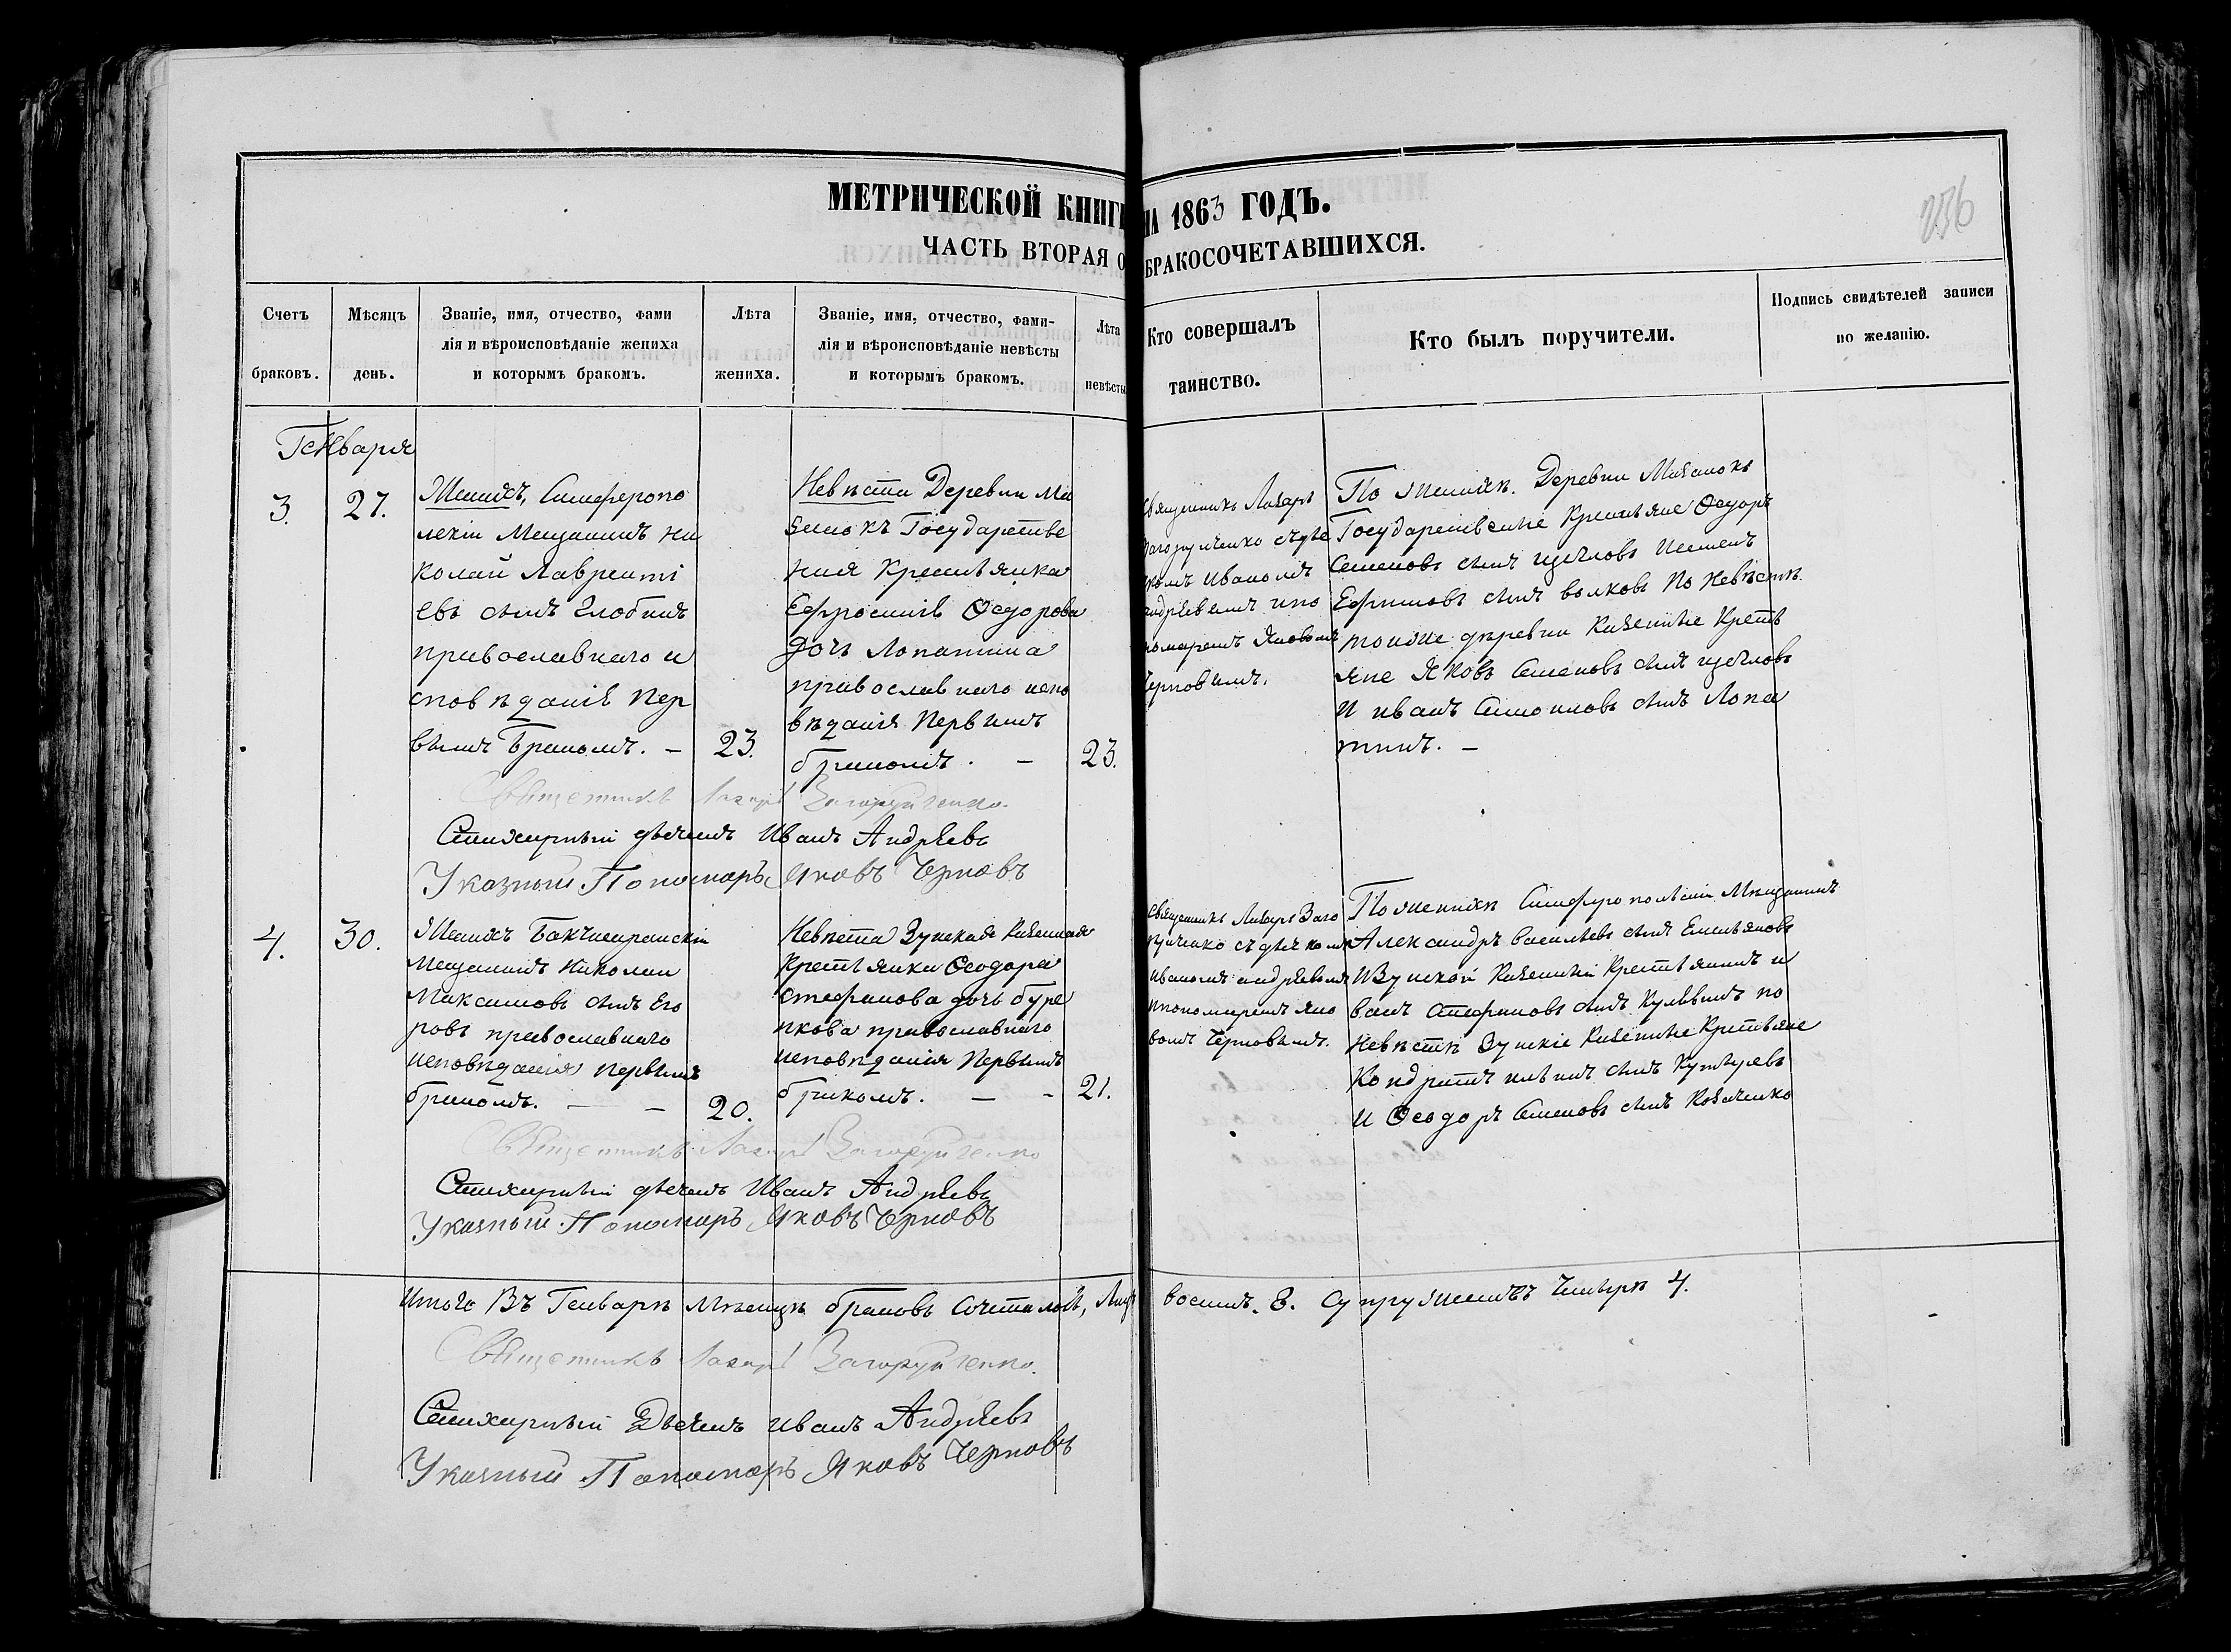 МЕТРИЧЕСКОЙ КНИГИ НА 1863 ГОДЪ.
ЧАСТЬ ВТОРАЯ О БРАКОСОЧЕТАВШИХСЯ.
256
Счетъ браковъ.
Мѣсяцъ день.
Званіе, имя, отчество, фами
лія и вѣроисповѣданіе жениха
и которымъ бракомъ.
Лѣта жениха.
Званіе, имя, отчество, фами-
лія и вѣроисповѣданіе невѣсты
и которымъ бракомъ.
Лѣта невѣсты
Кто совершалъ
таинство.
Кто былъ поручители.
Подпись свидѣтелей записи
по желанію.
Генваря
3.
27.
Женихъ, Симферопо
лскіи Мещанинъ Ни
колай Лавренті
евъ сынъ Злобинъ
православнаго и
сповѣданія пер
вымъ бракомъ. –
23.
Невѣста Деревни Ма
занокъ Государстве
ная Крестьянка
Ефросинія Ѳедорова
дочь Лопатина
православнаго испо
вѣданія первымъ
бракомъ. –
23.
Священникъ Лазарь
Загоруйченко съ дья
комъ Иваномъ
Андрѣевымъ и по
номаремъ Яковомъ
Черновымъ.
По женихѣ. Деревни Мазанокъ
Государственые Крестьяне Ѳедоръ
Семеновъ сынъ Щегловъ
Ефимовъ сынъ Волковъ по Невѣстѣ
тойже деревни Казеные Кресть
яне Яковъ Семеновъ сынъ Щегловъ
и Иванъ Самоиловъ сынъ Лопа
тинъ. –
Священникъ Лазарь Загоруйченко.
Стихарный дьячекъ Иванъ Андрѣевъ
Указный Пономарь Яковъ Черновъ
4.
30.
Женихъ Бакчисарайскіи
Мещанинъ Николаи
Максимовъ сынъ Его
ровъ православнаго
исповѣданія первымъ
бракомъ. – –
20.
Невѣста Зуйская Казенная
Крестьянка Ѳеодора
Стефанова дочь Буре
нкова православнаго
исповѣданія первымъ
бракомъ. – –
21.
Священникъ Лазарь Заго
руйченко съ дьячкомъ
Иваномъ Андрѣевомъ
и пономаремъ Яко
вомъ Черновымъ.
По женихѣ Симферопольскіи Мѣщанинъ
Александръ Васильевъ сынъ Емельяновъ
и Зуйской Казенный Крестьянинъ И
ванъ Стефановъ сынъ по
Невѣстѣ Зуйскіе Казенные Крестьяне
Кондратъ сынъ
и Ѳеодоръ Семеновъ сынъ Козаченко
Священникъ Лазарь Загоруйченко
Стихарный дьячекъ Иванъ Андрѣевъ
Указный Пономарь Яковъ Черновъ
Итого Въ Генварѣ Мѣсяцѣ браковъ сочеталось, Лицъ восемь. 8. Супружествъ Четыре 4.
Священникъ Лазарь Загоруйченко.
Стихарный Дьячекъ Иванъ Андрѣевъ
Указный Пономарь Яковъ Черновъ